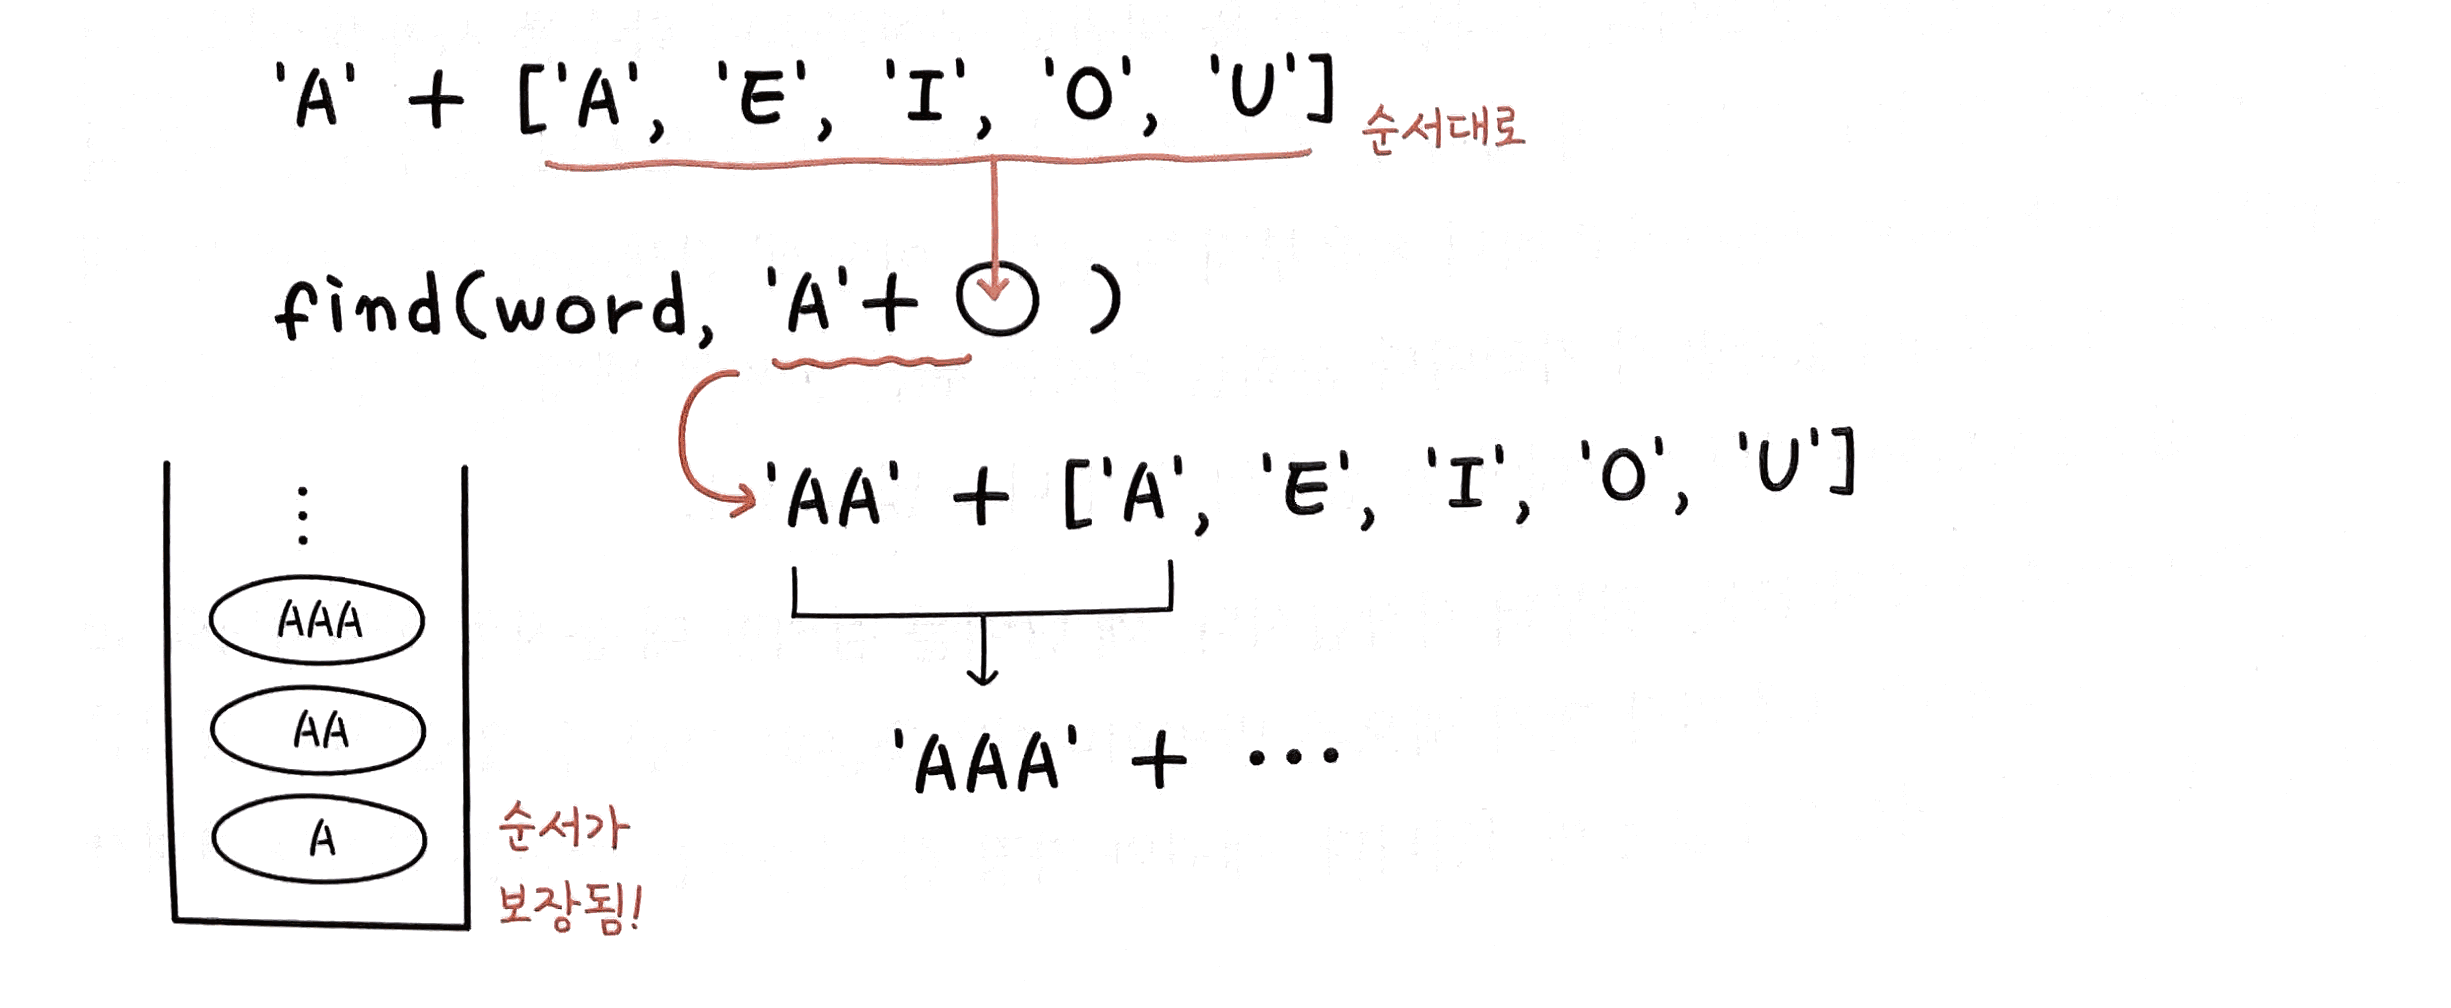 'A' + ['A', 'E', 'I', 'O', 'U'] 순서대로
find(word, 'A'+ )
'AA' + ['A', 'E', 'I', 'O', 'U']
'AAA' + ...
⋮
AAA
AA
A
순서가
보장됨!